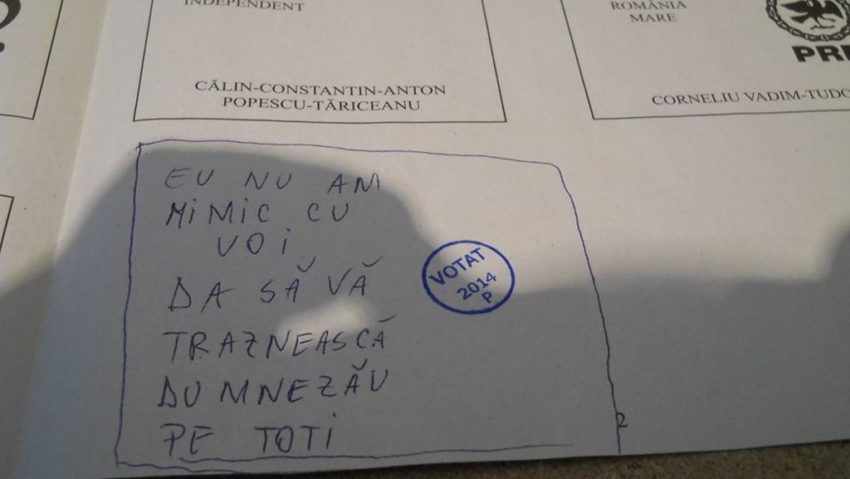 INDEPENDENT
CĂLIN-CONSTANTIN-ANTON
POPESCU-TĂRICEANU
ROMÂNIA
MARE
PR
CORNELIU VADIM-TUDO
EU NU AM
MiMiC CU
VOi
DA SĂ VĂ
TRAZNEASCĂ
DUMNEZĂU
PE TOTi
VOTAT
2014
P
2